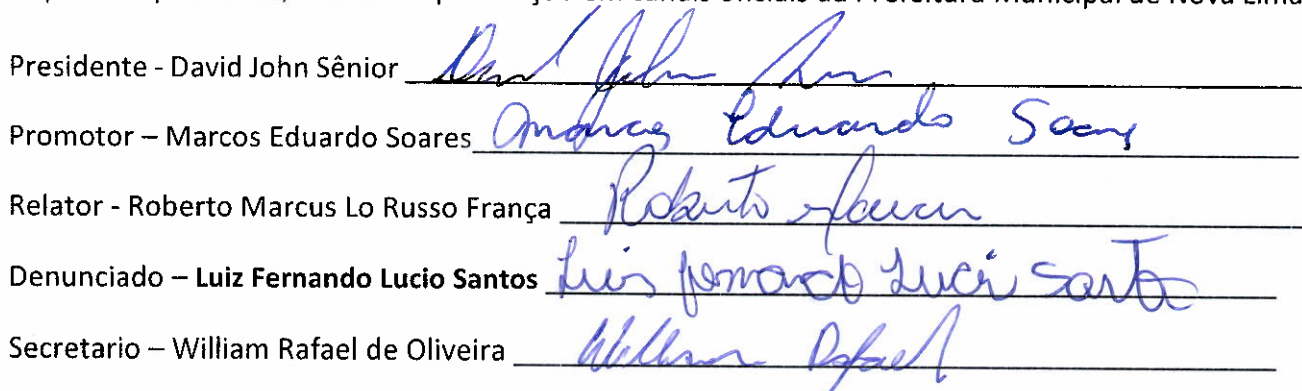 canais oficiais da Prefeitura Municipal de Nova Lima
Presidente - David John Sênior David John
Promotor – Marcos Eduardo Soares Marcos Eduardo Soares
Relator - Roberto Marcus Lo Russo França Roberto Marcus
Denunciado – Luiz Fernando Lucio Santos Luis Fernando Lucio Santos
Secretario – William Rafael de Oliveira William Rafael